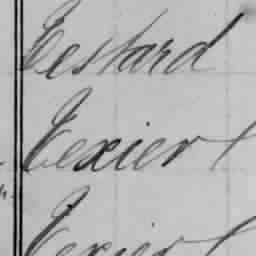 Testard
Texier
Texier